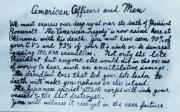 American Officers and Men
We must express our deep regret over the death of President
Roosevelt. The "American Tragedy" is now raised here at
Okinawa with his death. You must have seen 70% of
your CV's and 73% of your B's sink or be damaged
causing 150,000 casualties. Not only the late
President but anyone else would die in the excess
of worry to hear such an annihilative damage.
The dreadful loss that led your late leader to
death will make you orphans on this island.
The Japanese special attack corps will sink your
vessels to the last destroyer.
You will witness it realized in the near future.